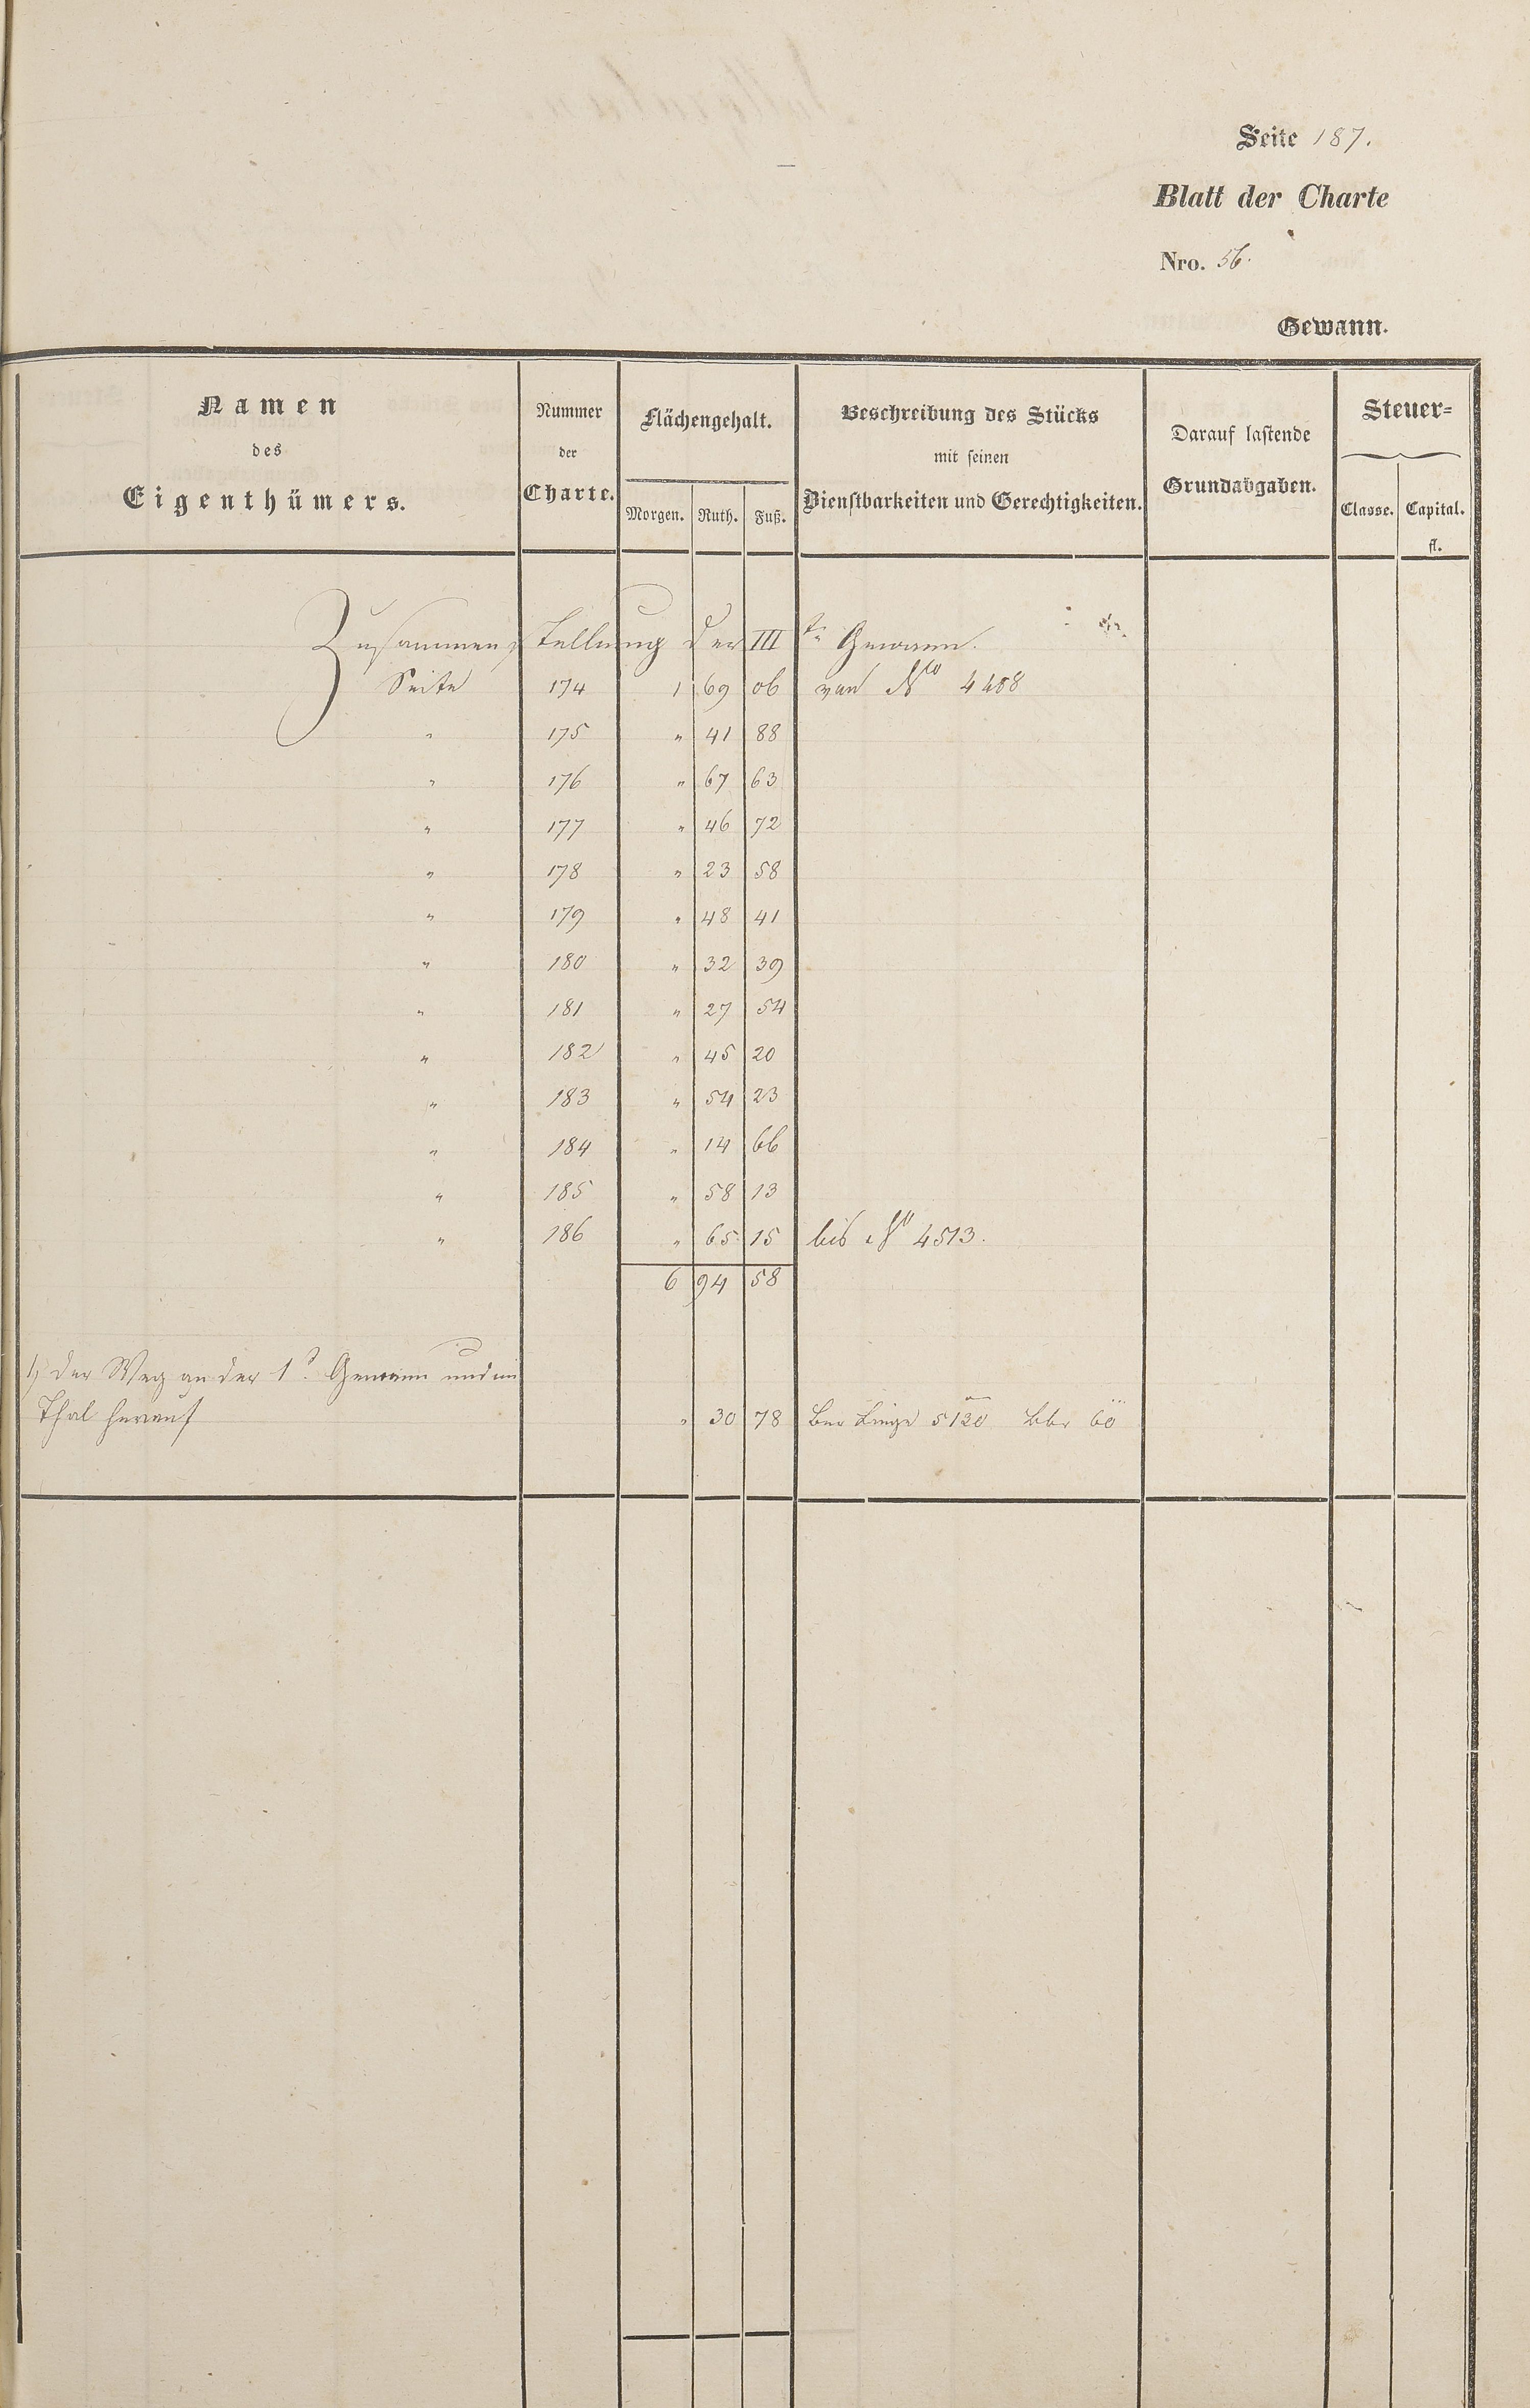 Seite 187.
Blatt der Charte
Nro. 56.
Gewann.
Namen des Eigenthümers.
Nummer der Charte.
Flächengehalt.
Morgen. Ruth. Fuß.
Beschreibung des Stücks mit seinen Dienstbarkeiten und Gerechtigkeiten.
Darauf lastende Grundabgaben.
Steuer=
Classe. Capital.
fl.
Zusammenstellung der III te Gewann.
Seite 174 1 69 06 von No 4488
" 175 " 41 88
" 176 " 67 63
" 177 " 46 72
" 178 " 23 58
" 179 " 48 41
" 180 " 32 39
" 181 " 27 54
" 182 " 45 20
" 183 " 54 23
" 184 " 14 66
" 185 " 58 13
" 186 " 65 15 bis No 4513.
6 94 58
1, der Weg an der 1t. Gewann und im
Thal herauf " 30 78 Länge 5120 60